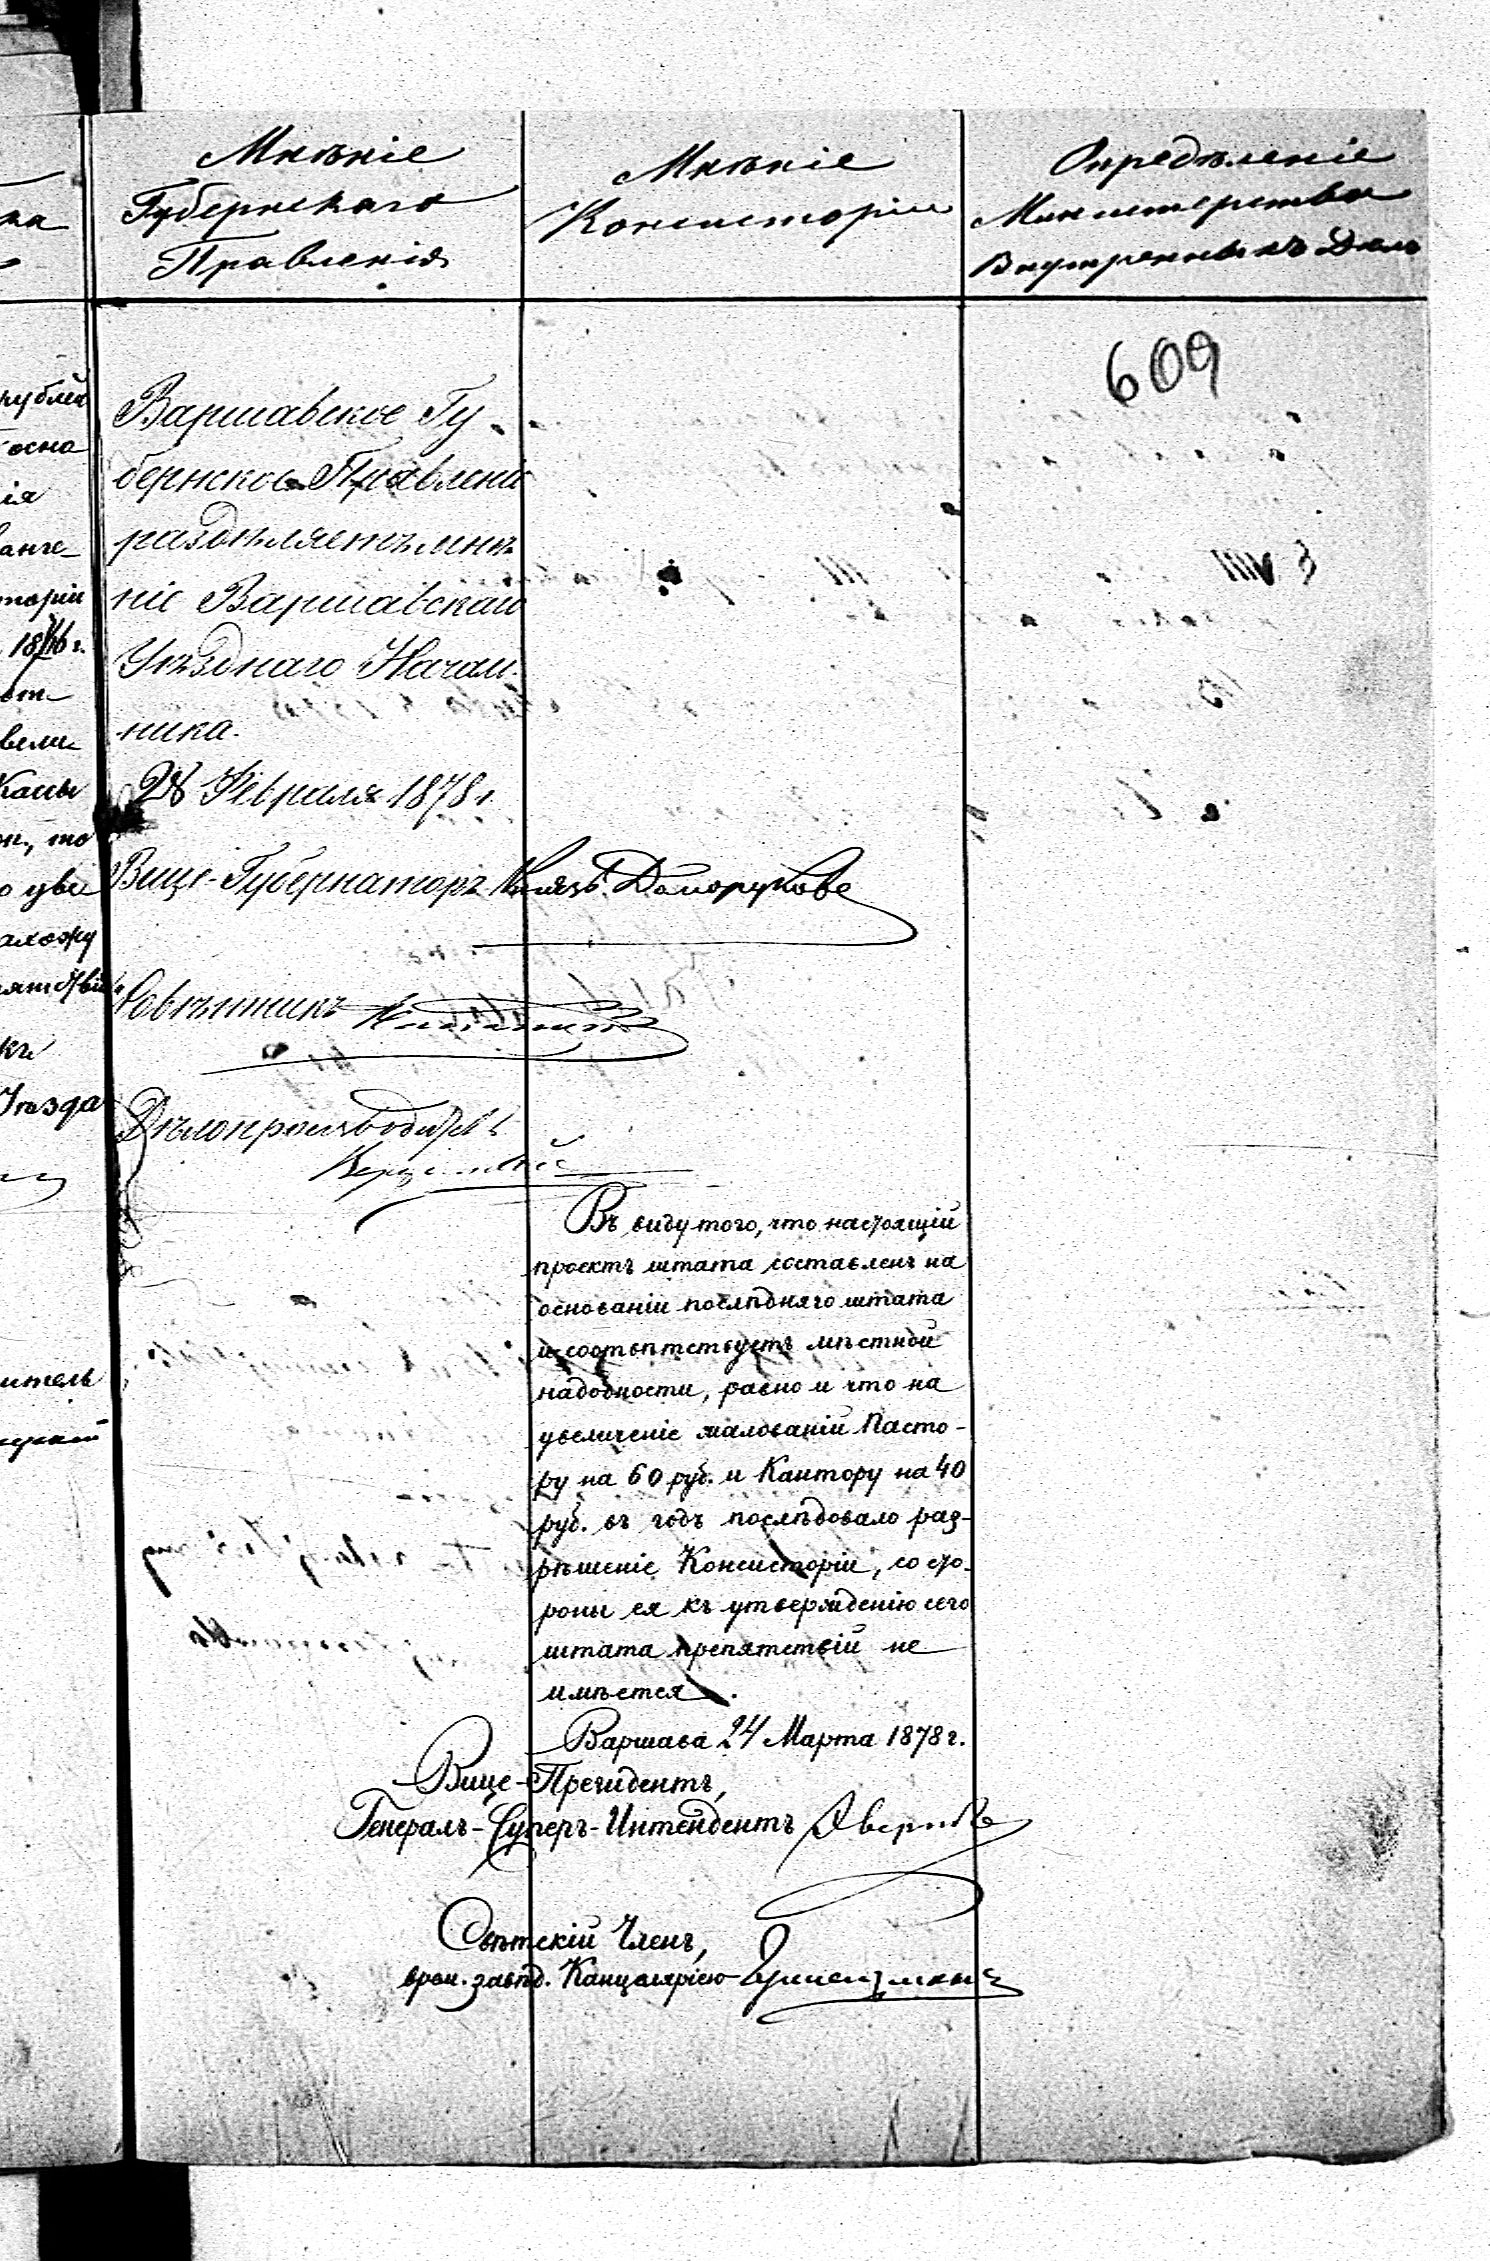 Мнѣніе
Губернскаго
Правленія
Мнѣніе
Консисторіи
Опредѣленіе
Министерства
Внутреннихъ Дѣлъ
609
рублей
осно
ія
анге-
торіи
вели
то
Уѣзда
итель
Варшавское Гу-
бернское Правленіе
раздѣляетъ мнѣ-
ніе Варшавскаго
Уѣзднаго Началь-
ника.
28 Февраля 1878 г.
Вице-Губернаторъ Князь Долоруковъ
Совѣтникъ
Дѣлопроизводитель
Въ виду того, что настоящій
проектъ штата составленъ на
основаніи послѣдняго штата
и соотвѣтствуетъ мѣстной
надобности, равно и что на
увеличеніе жалованій Пасто-
ру на 60 руб. и Кантору на 40
руб. въ годъ послѣдовало раз-
рѣшеніе Консисторіи, со сто-
роны ея къ утвержденію сего
штата препятствій не
имѣется.
Варшава 24 Марта 1878 г.
Вице-Президентъ,
Генералъ-Суперъ-Интендентъ
Свѣтскій Членъ,
врем. завѣд. Канцеляріею